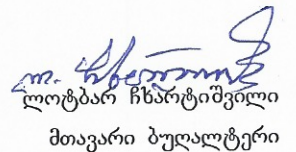 ლოტბარ ჩხარტიშვილი
მთავარი ბუღალტერი